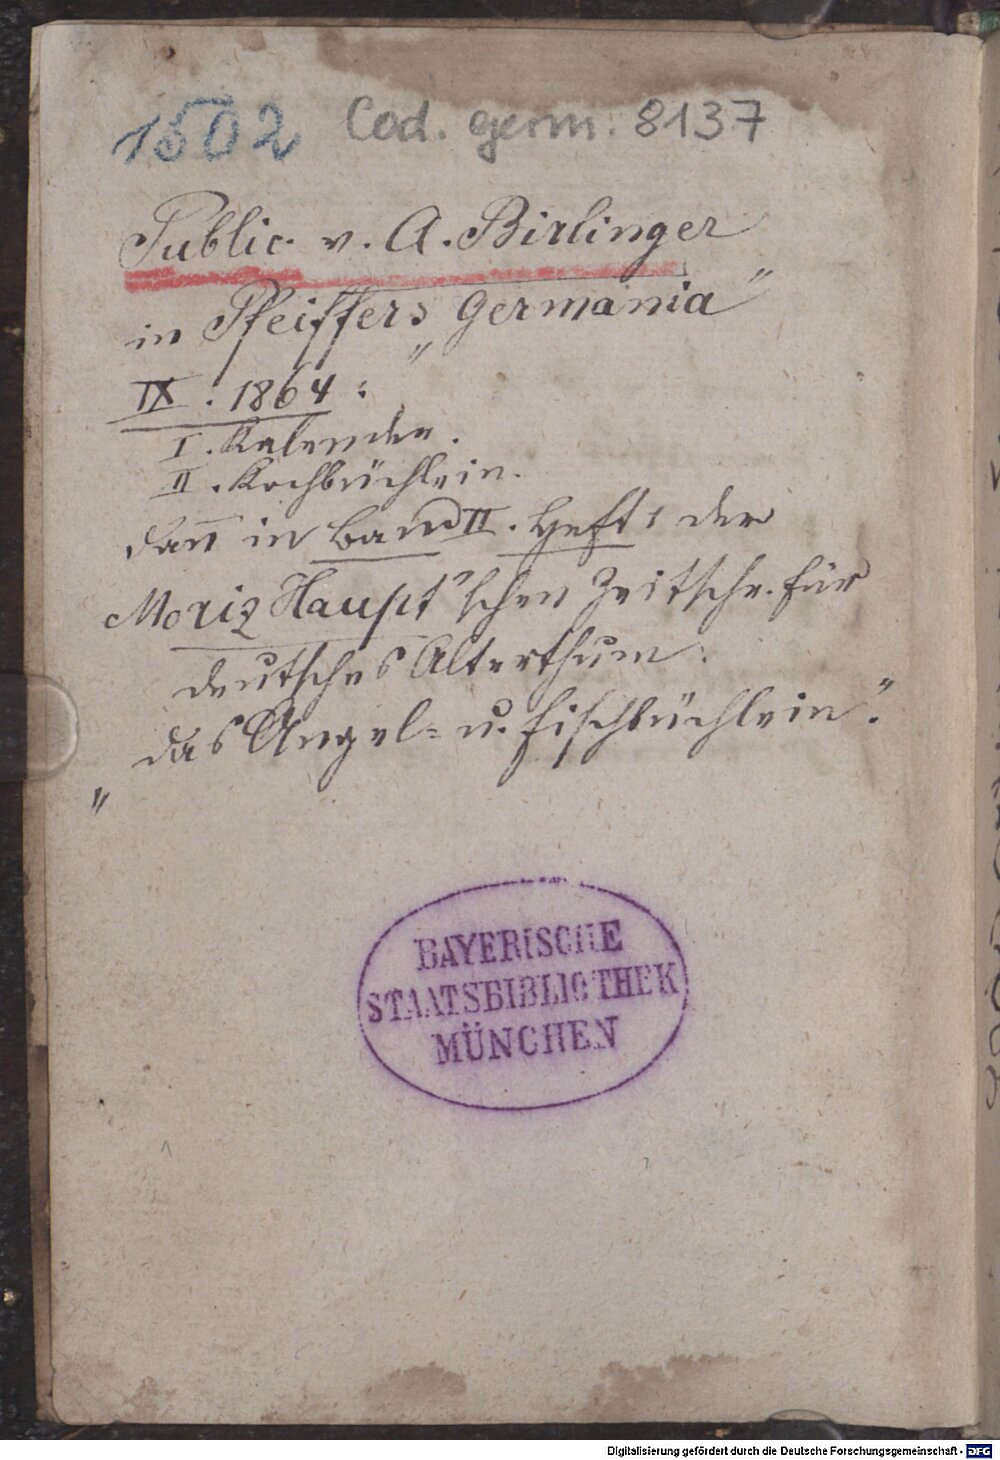 1502 Cod. germ. 8137
Public. v. A. Birlinger
in Pfeiffers „Germania“
IX. 1864:
I. Kalender.
II. Kochbüchlein.
dan̄ in Band II. Heft 1 der
Moriz Haupt'schen Zeitschr. für
deutsches Alterthum:
„das Angel- u. Fischbüchlein.“
BAYERISCHE
STAATSBIBLIOTHEK
MÜNCHEN
Digitalisierung gefördert durch die Deutsche Forschungsgemeinschaft - DFG